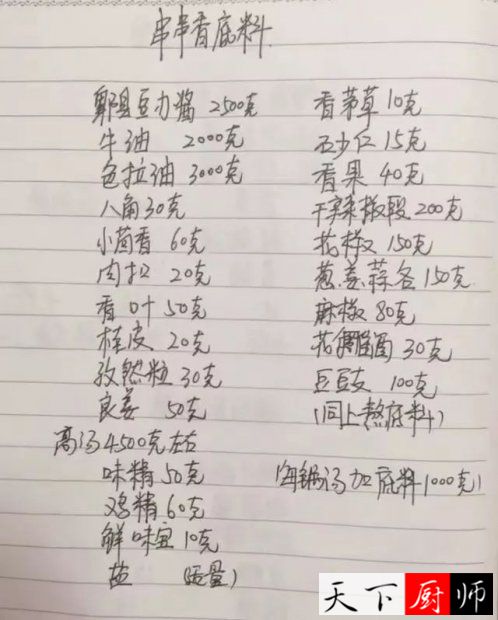 串串香底料
郫县豆办酱 2500克
牛油 2000克
色拉油 3000克
八角 30克
小茴香 60克
肉扣 20克
香叶 50克
桂皮 20克
孜然粒 30克
良姜 50克
高汤4500克左右
味精 50克
鸡精 60克
鲜味宝 10克
盐 (适量)
香茅草 10克
砂仁 15克
香果 40克
干辣椒段 200克
花椒 150克
葱姜蒜各 150克
麻椒 80克
花雕酒 30克
豆豉 100克
(同上熬底料)
(每锅汤加底料1000克)
天下厨师